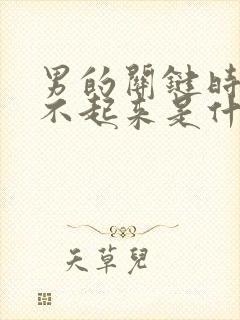 男的關鍵時
不起來是什
天草兒